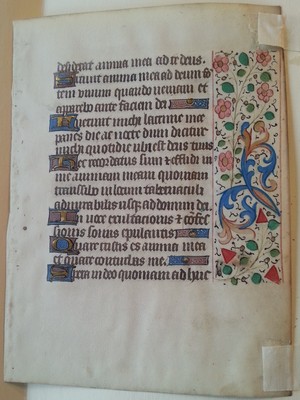 desiderat anima mea ad te deus.
Sitivit anima mea ad deum fō
tem vivum quando veniam et
apparebo ante faciem dei
Fuerunt michi lacrime mee
panes die ac nocte dum dicitur
michi quotidie ubi est deus tuus
Hec recordatus sum et effudi in
me animam meam quoniam
transibo in locum tabernaculi
admirabilis usq; ad domum dei.
In voce exultacionis et cōfes
sionis sonus epulantis
Quare tristis es anima mea
et quare conturbas me.
Spera in deo quoniam adhuc